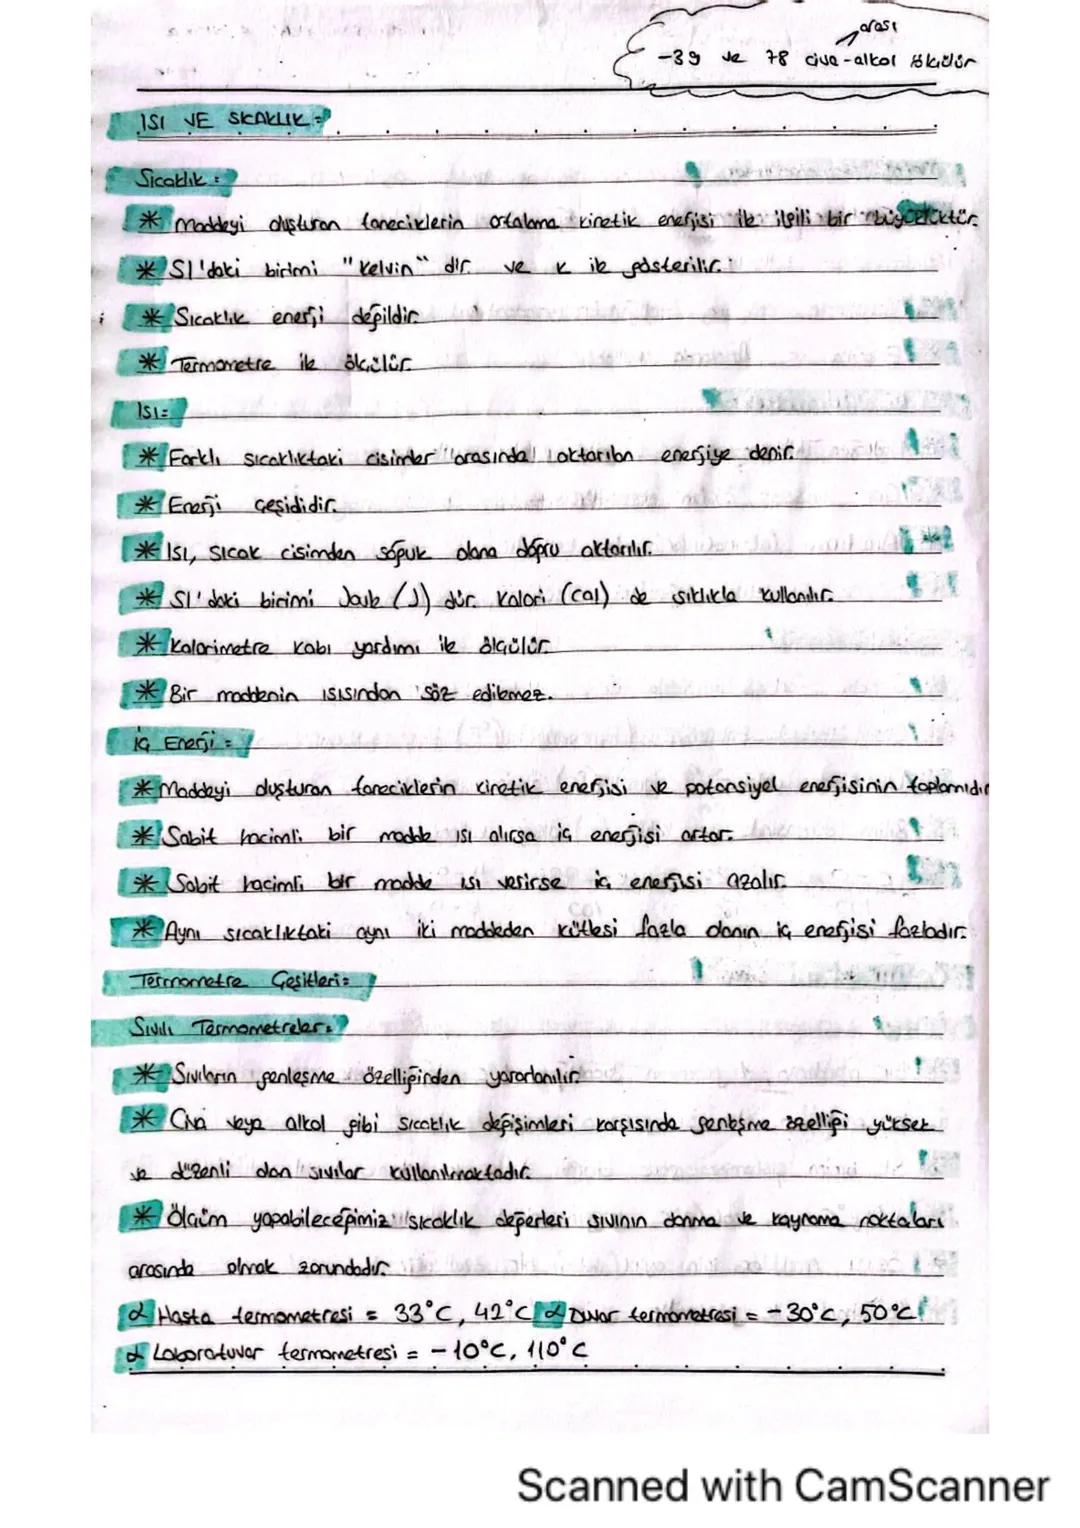 arası
-39 ve 78 civa-alkol ölçülür
ISI VE SICAKLIK =
Sıcaklık :
* Maddeyi oluşturan taneciklerin ortalama kinetik enerjisi ile ilgili bir büyüklüktür.
* SI'daki birimi "Kelvin" dir ve K ile gösterilir.
* Sıcaklık enerji değildir.
* Termometre ile ölçülür.
Isı=
* Farklı sıcaklıktaki cisimler arasında aktarılan enerjiye denir.
* Enerji çeşididir.
* Isı, sıcak cisimden soğuk olana doğru aktarılır.
* SI'daki birimi Joule (J) dür. Kalori (cal) de sıklıkla kullanılır.
* Kalorimetre kabı yardımı ile ölçülür.
* Bir maddenin ısısından söz edilemez.
İç Enerji =
* Maddeyi oluşturan taneciklerin kinetik enerjisi ve potansiyel enerjisinin toplamıdır
* Sabit hacimli bir madde ısı alırsa iç enerjisi artar.
* Sabit hacimli bir madde ısı verirse iç enerjisi azalır.
* Aynı sıcaklıktaki aynı iki maddeden kütlesi fazla olanın iç enerjisi fazladır.
Termometre Çeşitleri:
Sıvılı Termometreler:
* Sıvıların genleşme özelliğinden yararlanılır.
* Civa veya alkol gibi sıcaklık değişimleri karşısında genleşme özelliği yüksek
ve düzenli olan sıvılar kullanılmaktadır.
* Ölçüm yapabileceğimiz sıcaklık değerleri sıvının donma ve kaynama noktaları
arasında olmak zorundadır.
α Hasta termometresi = 33°C, 42°C α Duvar termometresi = -30°C, 50°C
α Laboratuvar termometresi = -10°C, 110°C
Scanned with CamScanner